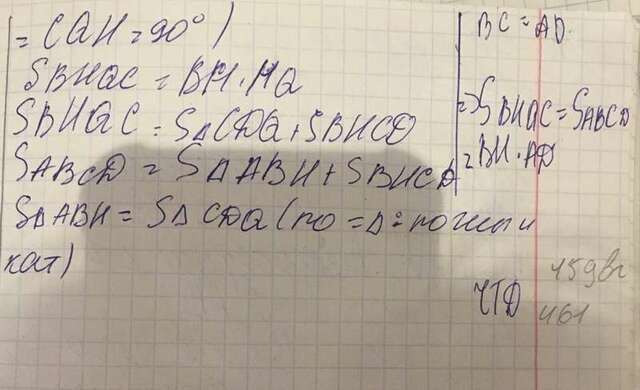 = CQH = 90°)
SBHQC = BH · HQ
SBHQC = S△CDQ + SBHCD
SABCD = S△ABH + SBHCD
S△ABH = S△CDQ (по = △: по гип и
кат)
BC = AD
=> SBHQC = SABCD
= BH · AD
ЧТД
459
461